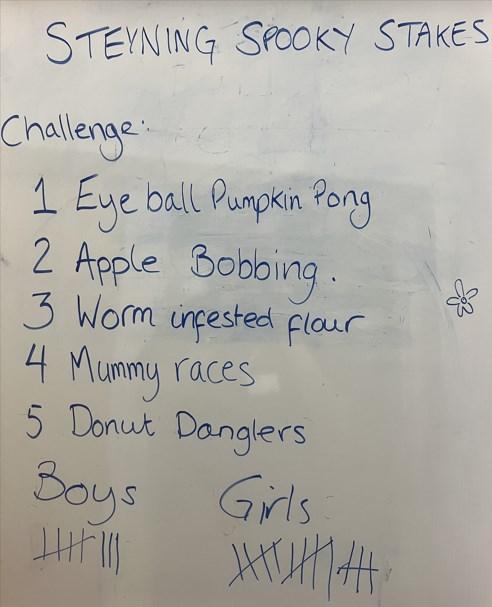 STEYNING SPOOKY STAKES
Challenge:
1 Eyeball Pumpkin Pong
2 Apple Bobbing.
3 Worm infested flour
4 Mummy races
5 Donut Danglers
Boys Girls